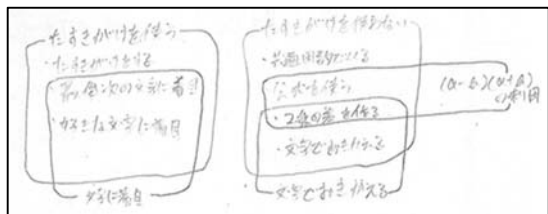 たすきがけを使う
・たすきがけをする
・最低次の文字に着目
・好きな文字に着目
文字に着目
たすきがけを使わない
・共通因数でくくる
・公式を使う
・2乗の差を作る
・文字でおきかえる
文字でおきかえる
(a-b)(a+b)
の利用